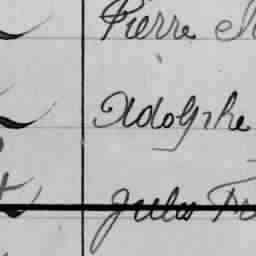 Pierre
Adolphe
Jules